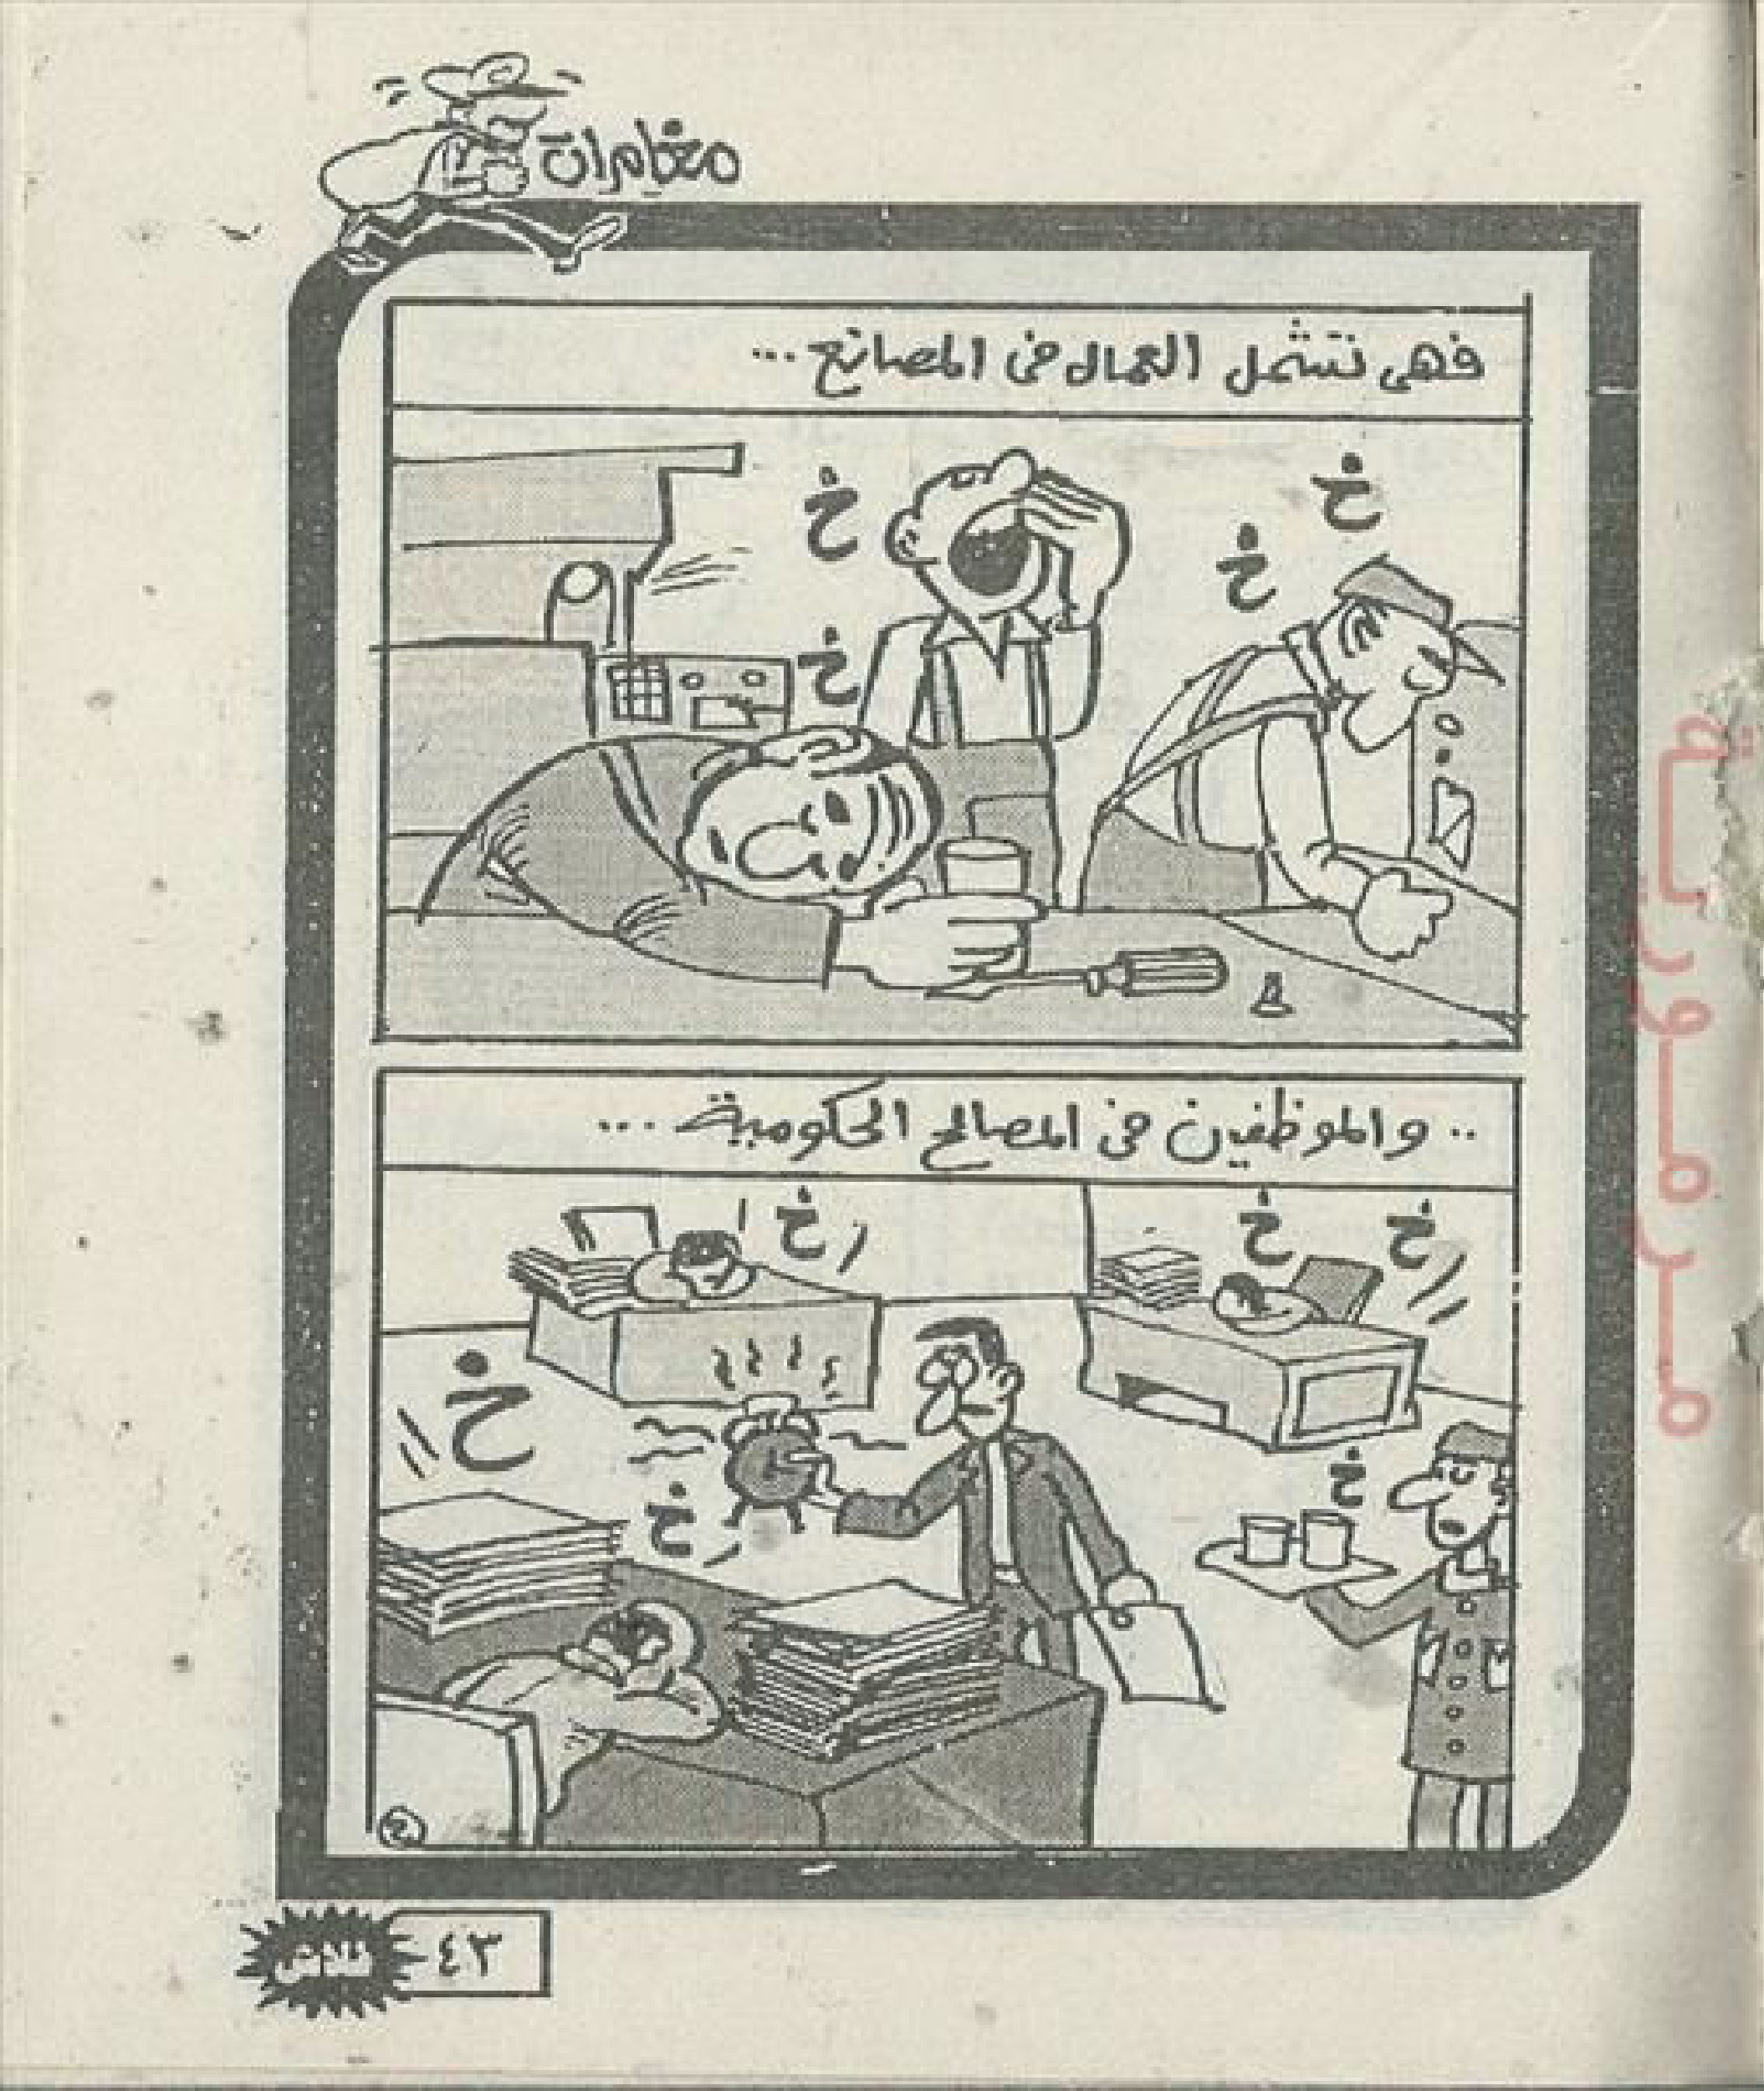 مغامرات
فهى تشمل العمال فى المصانع ...
خ
خ
خ
خ
.. والموظفين فى المصالح الحكومية ...
خ
خ
خ
خ
خ
خ
٤٣
فلاش
مرمورية